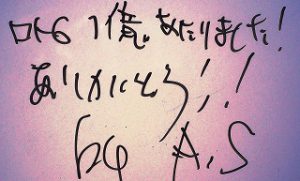 ロト6 1億。あたりました!
ありがとう!!
h29 A.S